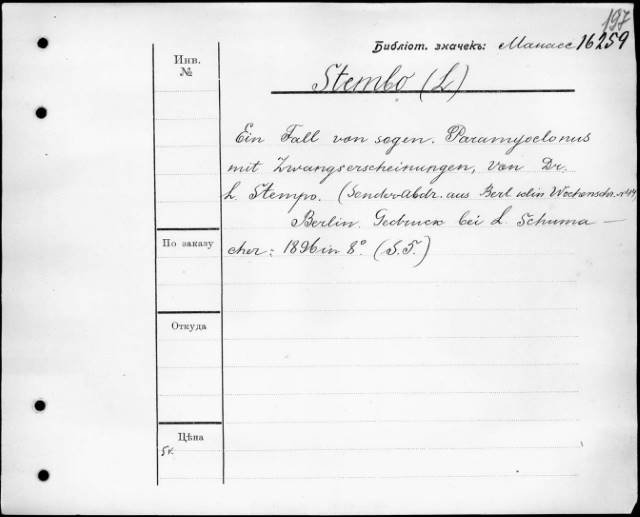 197
Библіот. значекъ: Манасс 16259
Инв.
№
Stembo (L)
Ein Fall von sogen. Paramyoclonus
mit Zwangserscheinungen, von Dr.
L. Stempo. (Sender-Abdr. aus Berl. Wochenschr. №44)
Berlin. Gedruck bei L Schuma—
cher: 1896 in 8° (S.T.)
По заказу
Откуда
Цѣна
5к.